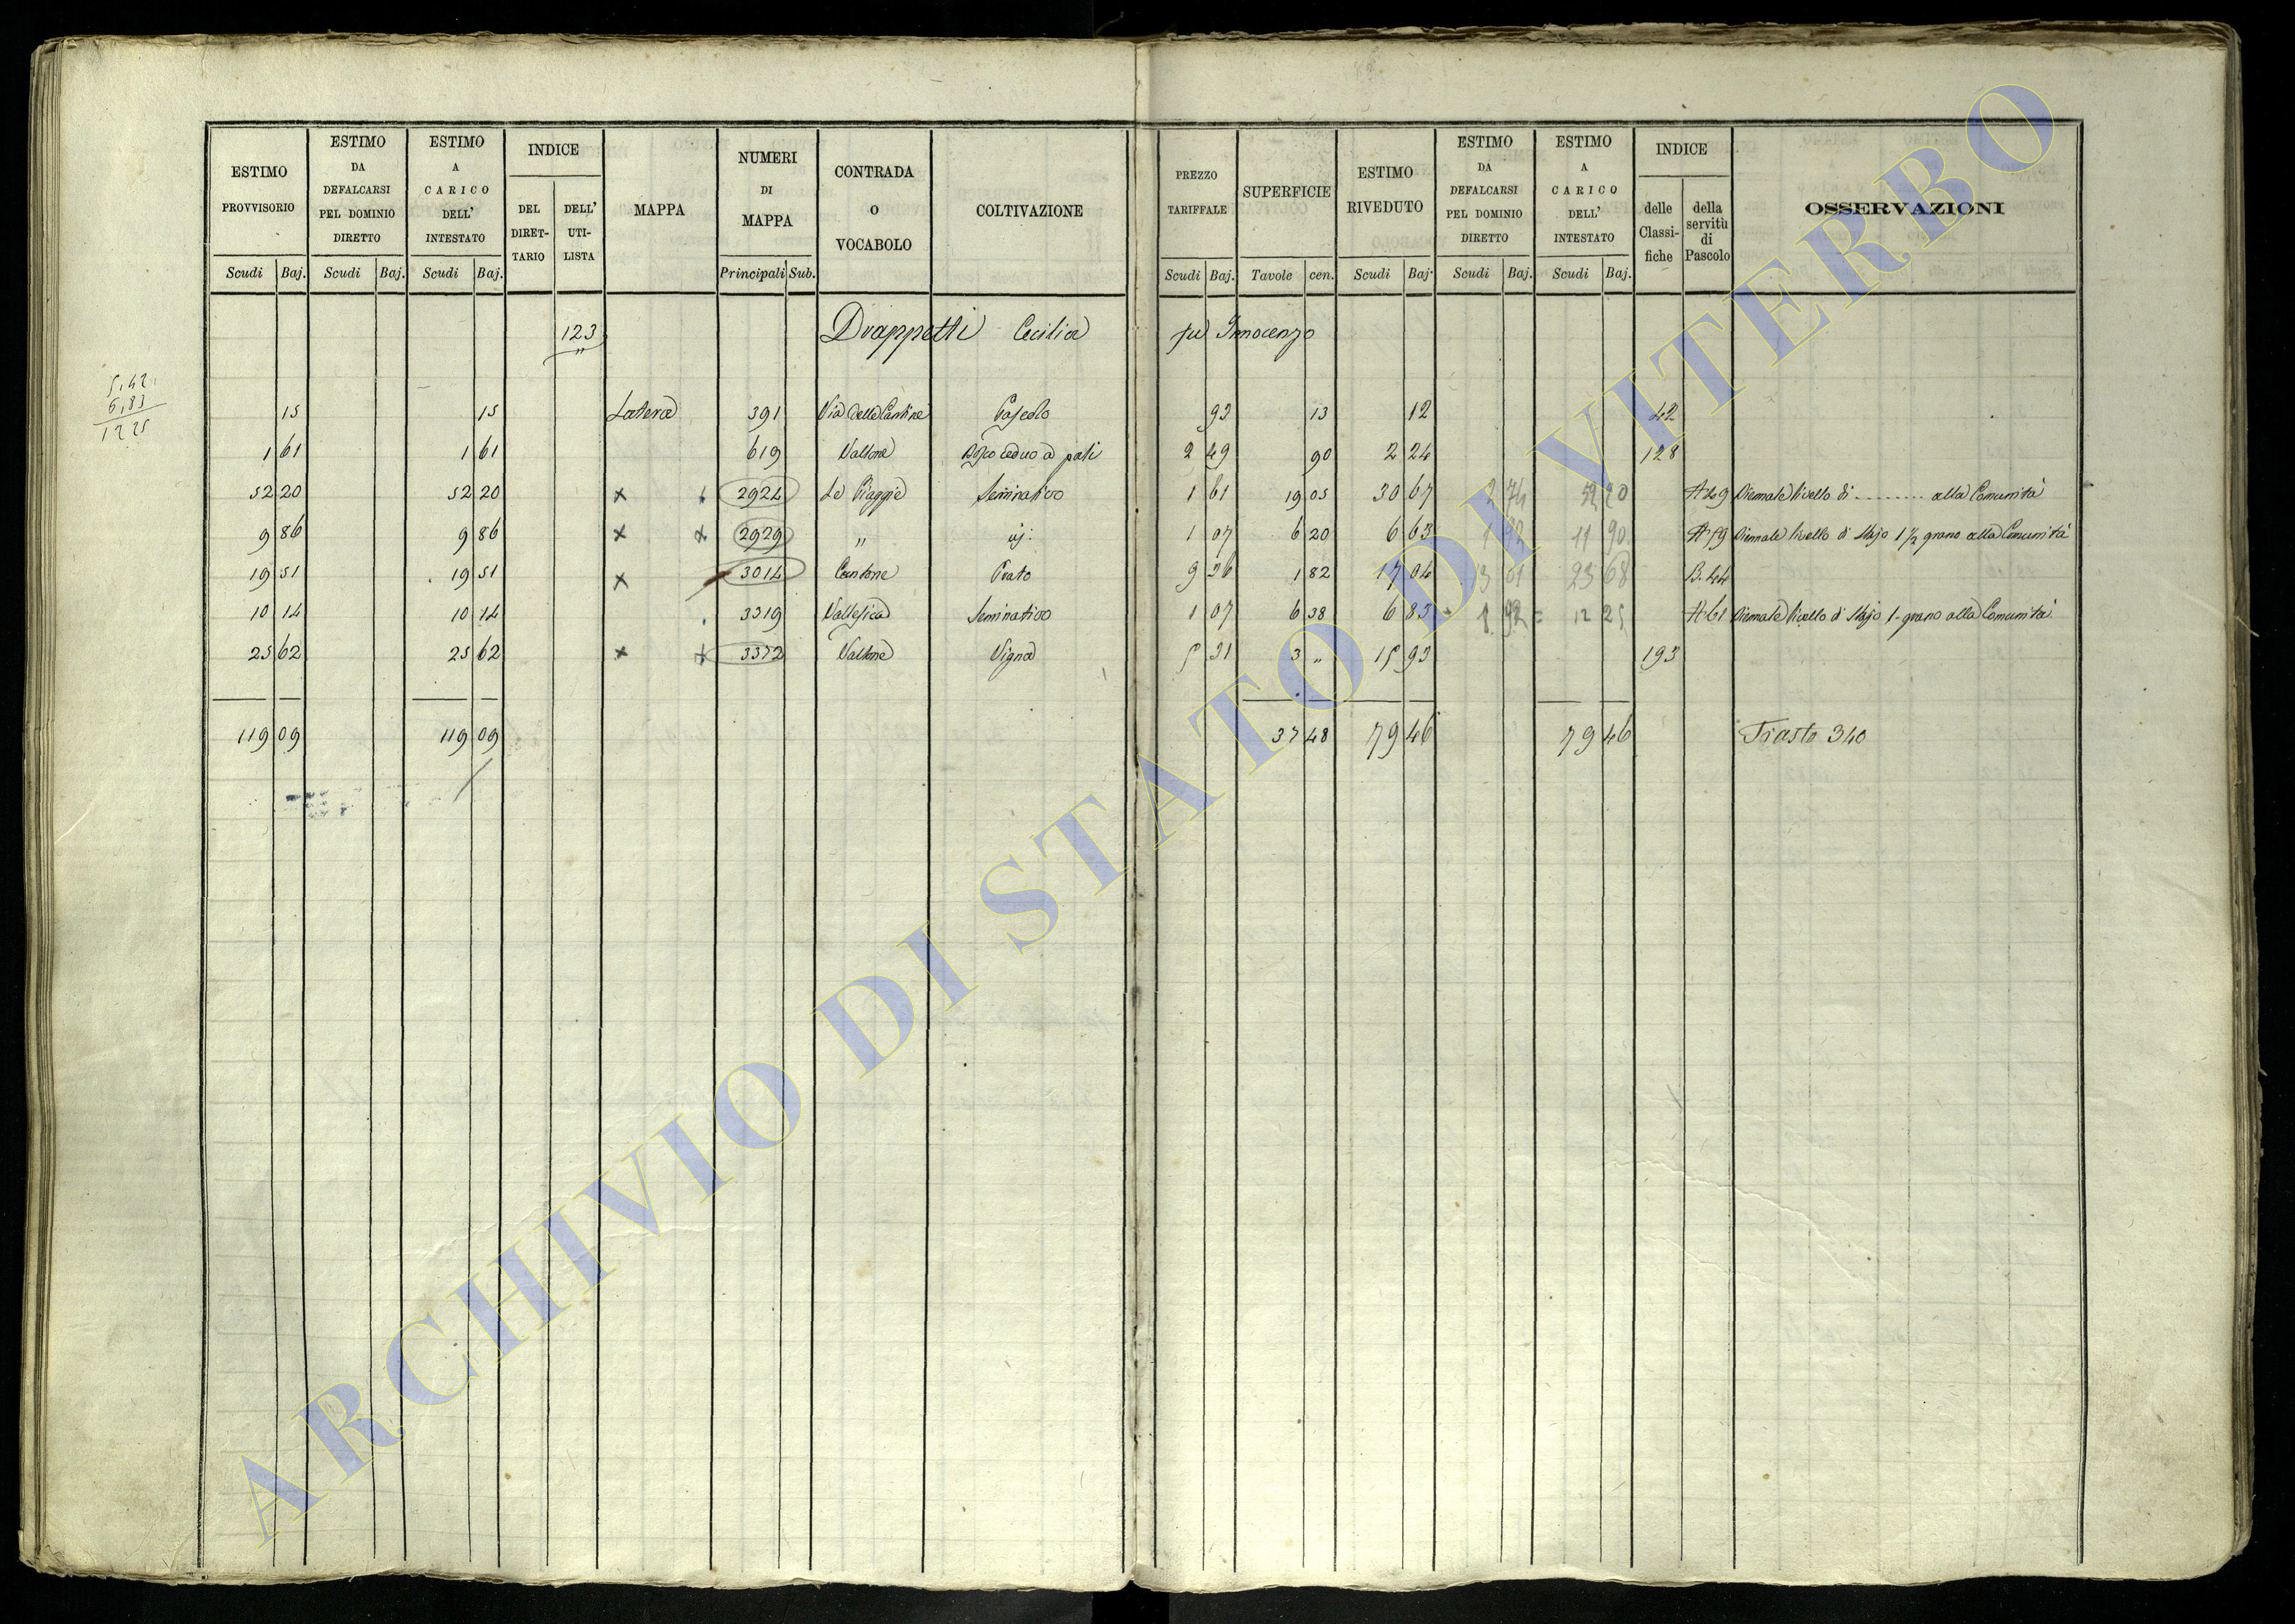 ESTIMO PROVVISORIO | ESTIMO DA DEFALCARSI PEL DOMINIO DIRETTO | ESTIMO A CARICO DELL' INTESTATO | INDICE DEL DIRET-TARIO | DELL' UTI-LISTA | MAPPA | NUMERI DI MAPPA | CONTRADA O VOCABOLO | COLTIVAZIONE | PREZZO TARIFFALE | SUPERFICIE | ESTIMO RIVEDUTO | ESTIMO DA DEFALCARSI PEL DOMINIO DIRETTO | ESTIMO A CARICO DELL' INTESTATO | INDICE delle Classi-fiche | della servitù di Pascolo | OSSERVAZIONI
Scudi Baj. | Scudi Baj. | Scudi Baj. | Principali Sub. | Scudi Baj. | Tavole cen. | Scudi Baj. | Scudi Baj. | Scudi Baj.
123 Drappetti Cecilia fu Innocenzo
5,42
6,83
12 25
15 | 15 | Latera | 391 | Via delle Cantine | Pascolo | 93 | 13 | 12 | 42
1 61 | 1 61 | 619 | Vallone | Bosco ceduo a pali | 2 49 | 90 | 2 24 | 128
52 20 | 52 20 | x | 2924 | Le Piaggie | Seminativo | 1 61 | 19 05 | 30 67 | 52 20 | A 49 | Biennale livello di ......... alla Comunità
9 86 | 9 86 | x | x | 2929 | " | id: | 1 07 | 6 20 | 6 63 | 11 90 | A 59 | Biennale livello di Stajo 1 1/2 grano alla Comunità
19 51 | 19 51 | x | 3014 | Cantone | Prato | 9 36 | 1 82 | 17 04 | 23 68 | B. 44
10 14 | 10 14 | 3319 | Vallesica | Seminativo | 1 07 | 6 38 | 6 83 | 12 25 | A 61 | Biennale livello di Stajo 1 grano alla Comunità
25 62 | 25 62 | x | x | 3372 | Vallone | Vigna | 5 31 | 3 " | 15 93 | 193
119 09 | 119 09 | 37 48 | 79 46 | 79 46 | Trasto 340
ARCHIVIO DI STATO DI VITERBO